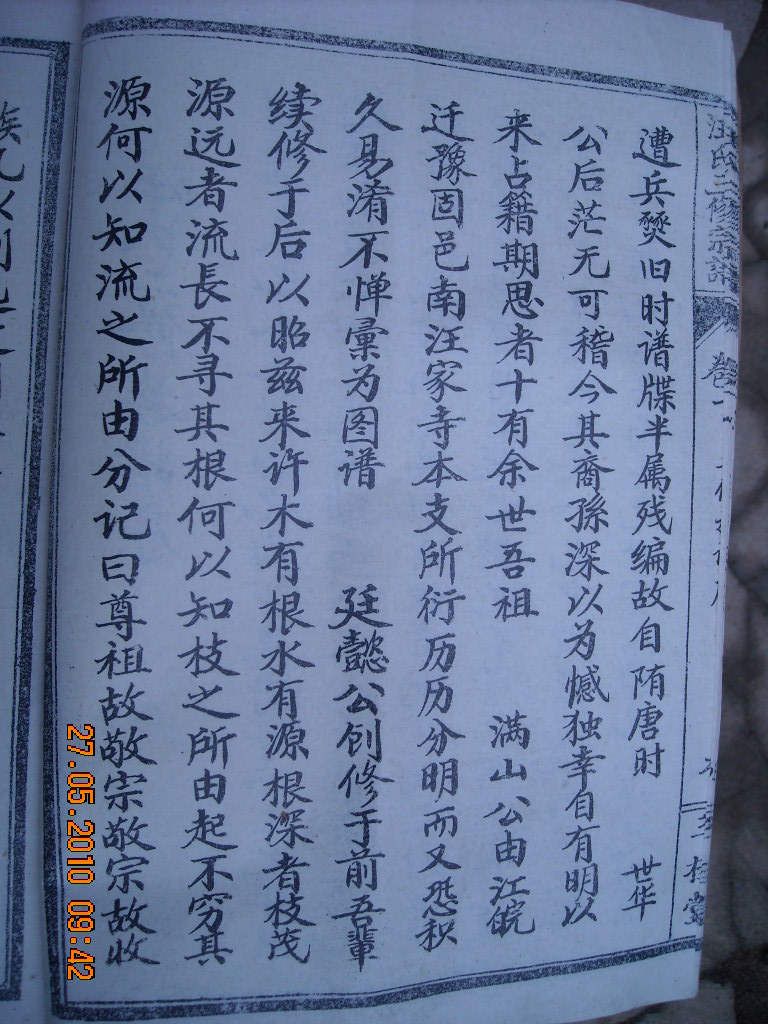 汪氏三修宗谱
卷一
三槐堂
遭兵燹旧时谱牒半属残编故自隋唐时 世华
公后茫无可稽今其裔孫深以为憾独幸自有明以
来占籍期思者十有余世吾祖 满山公由江皖
迁豫固邑南汪家寺本支所衍历历分明而又恐积
久易淆不惮彙为图谱 廷懿公创修于前吾輩
续修于后以昭兹来许木有根水有源根深者枝茂
源远者流長不寻其根何以知枝之所由起不穷其
源何以知流之所由分记曰尊祖故敬宗敬宗故收
27.05.2010 09:42